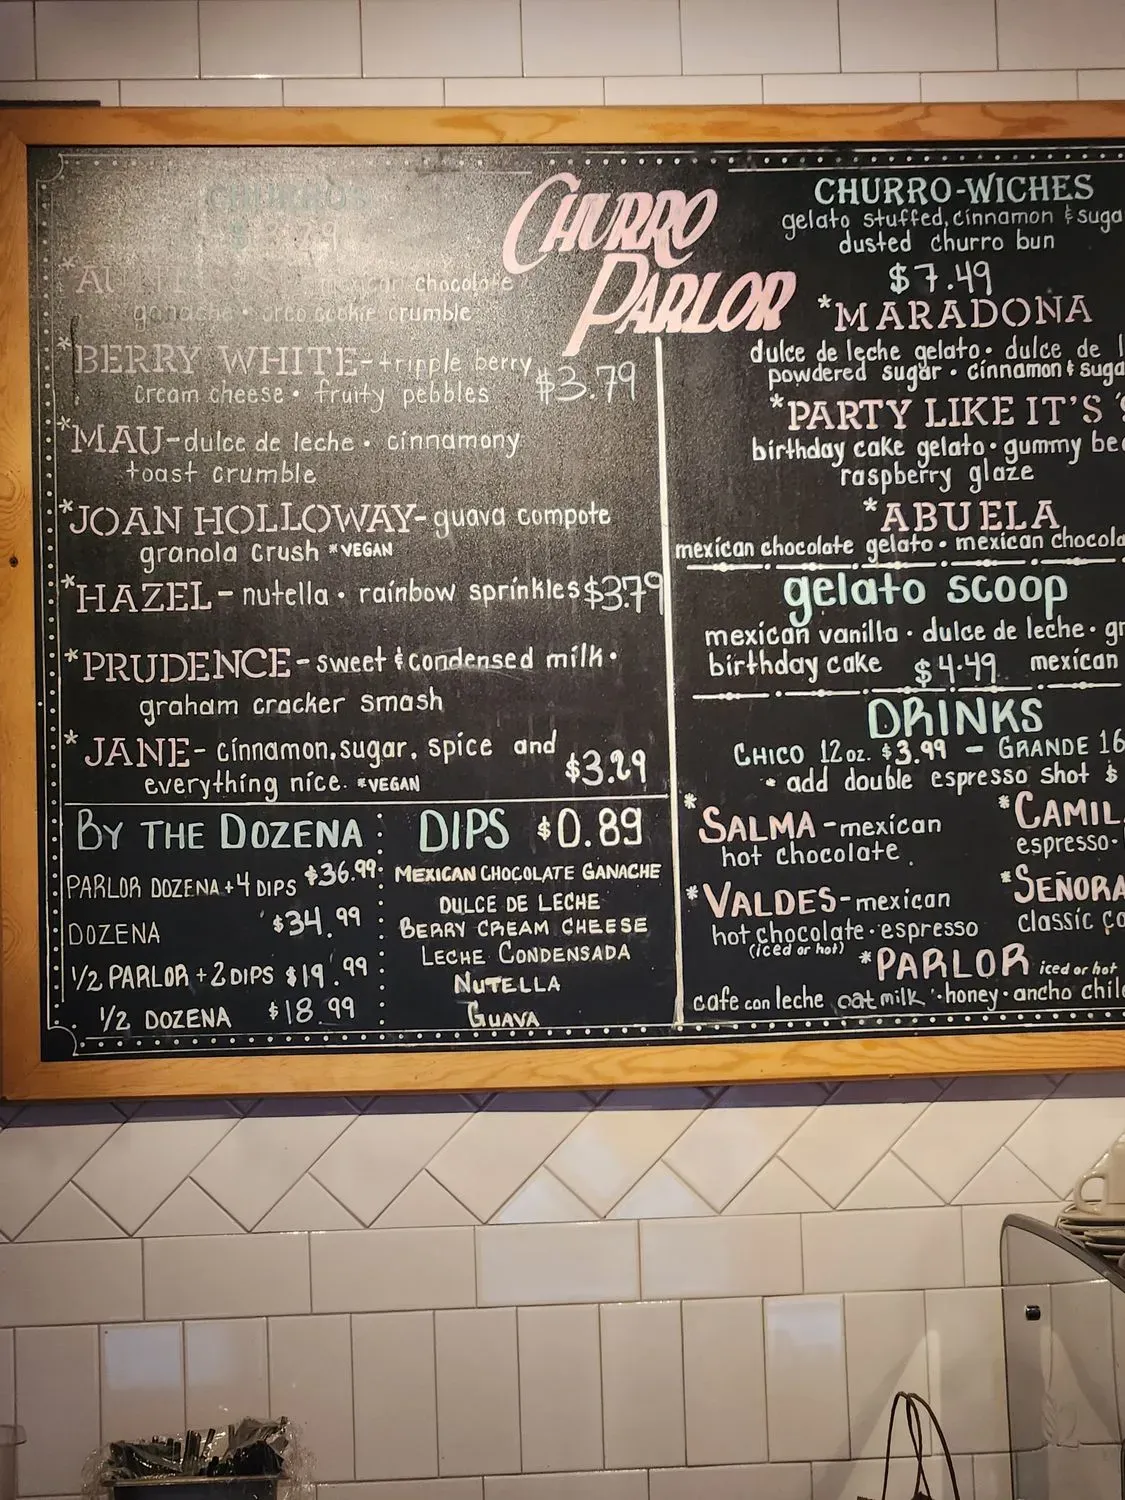 CHURROS
CHURRO
PARLOR
chocolate
ganache • oreo cookie crumble
*BERRY WHITE-tripple berry
cream cheese • fruity pebbles $3.79
*MAU-dulce de leche • cinnamony
toast crumble
*JOAN HOLLOWAY-guava compote
granola crush *VEGAN
*HAZEL- nutella • rainbow sprinkles $3.79
*PRUDENCE-sweet & condensed milk •
graham cracker smash
*JANE- cinnamon, sugar, spice and
everything nice. *VEGAN $3.29
BY THE DOZENA
PARLOR DOZENA + 4 DIPS $36.99
DOZENA $34.99
1/2 PARLOR + 2 DIPS $19.99
1/2 DOZENA $18.99
DIPS $0.89
MEXICAN CHOCOLATE GANACHE
DULCE DE LECHE
BERRY CREAM CHEESE
LECHE CONDENSADA
NUTELLA
GUAVA
CHURRO-WICHES
gelato stuffed, cinnamon & suga
dusted churro bun
$7.49
*MARADONA
dulce de leche gelato • dulce de l
powdered sugar • cinnamon & suga
*PARTY LIKE IT'S '
birthday cake gelato • gummy be
raspberry glaze
*ABUELA
mexican chocolate gelato • mexican chocola
gelato scoop
mexican vanilla • dulce de leche • gr
birthday cake $4.49 mexican
DRINKS
CHICO 12 oz. $3.99 - GRANDE 16
* add double espresso shot $
*SALMA-mexican
hot chocolate
*CAMIL
espresso •
*VALDES-mexican
hot chocolate • espresso
(iced or hot)
*SEÑORA
classic co
*PARLOR iced or hot
cafe con leche oat milk • honey • ancho chil